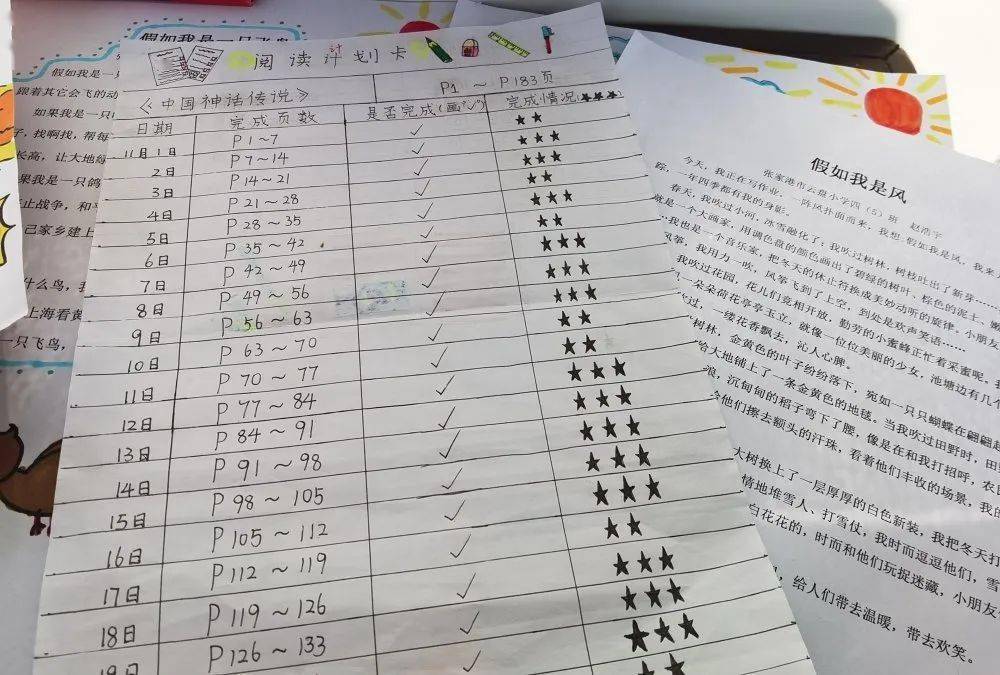 假如我是一只飞鸟
假如我是一
跟着其它会飞的动
如果我是一只
子，找啊找，帮每
长高，让大地
果我是一只鸽
止战争，和
己家乡建上
什么鸟，
上海看
一只飞鸟，
阅读计划卡
《中国神话传说》 P1 ~ P183页
日期 完成页数 是否完成(画“✓”) 完成情况(★★★)
11月1日 P1~7 ✓ ★★
2日 P7~14 ✓ ★★★
3日 P14~21 ✓ ★★★
4日 P21~28 ✓ ★★
5日 P28~35 ✓ ★★★
6日 P35~42 ✓ ★★
7日 P42~49 ✓ ★★★
8日 P49~56 ✓ ★★★
9日 P56~63 ✓ ★★★
10日 P63~70 ✓ ★★
11日 P70~77 ✓ ★★
12日 P77~84 ✓ ★★★
13日 P84~91 ✓ ★★★
14日 P91~98 ✓ ★★★
15日 P98~105 ✓ ★★★
16日 P105~112 ✓ ★★★
17日 P112~119 ✓ ★★
18日 P119~126 ✓ ★★★
19日 P126~133 ✓ ★★★
假如我是风
张家港市云盘小学四（5）班 赵浩宇
今天，我正在写作业，一阵风扑面而来，我想：假如我是风，我来
踪，一年四季都有我的身影。
春天，我吹过小河，冰雪融化了；我吹过树林，树枝吐出了新芽……
就是一个大画家，用调色盘的颜色画出了碧绿的树叶，棕色的泥土，
我也是一个音乐家，把冬天的休止符换成美妙动听的旋律，小朋友
风筝，我用力一吹，风筝飞到了上空，到处是欢声笑语……
我吹过花园，花儿们竞相开放，勤劳的小蜜蜂正忙着采蜜呢。
一朵朵荷花亭亭玉立，就像一位位美丽的少女，池塘边有几个
过，一缕花香飘去，沁人心脾。
树林，金黄色的叶子纷纷落下，宛如一只只蝴蝶在翩翩起
给大地铺上了一条金黄色的地毯。当我吹过田野时，田
浪，沉甸甸的稻子弯下了腰，像是在和我打招呼，农
给他们擦去额头的汗珠，看着他们丰收的场景，我的
大树换上了一层厚厚的白色新装，我把冬天打
情地堆雪人、打雪仗，我时而逗逗他们，雪
白花花的，时而和他们玩捉迷藏，小朋友
，给人们带去温暖，带去欢笑。